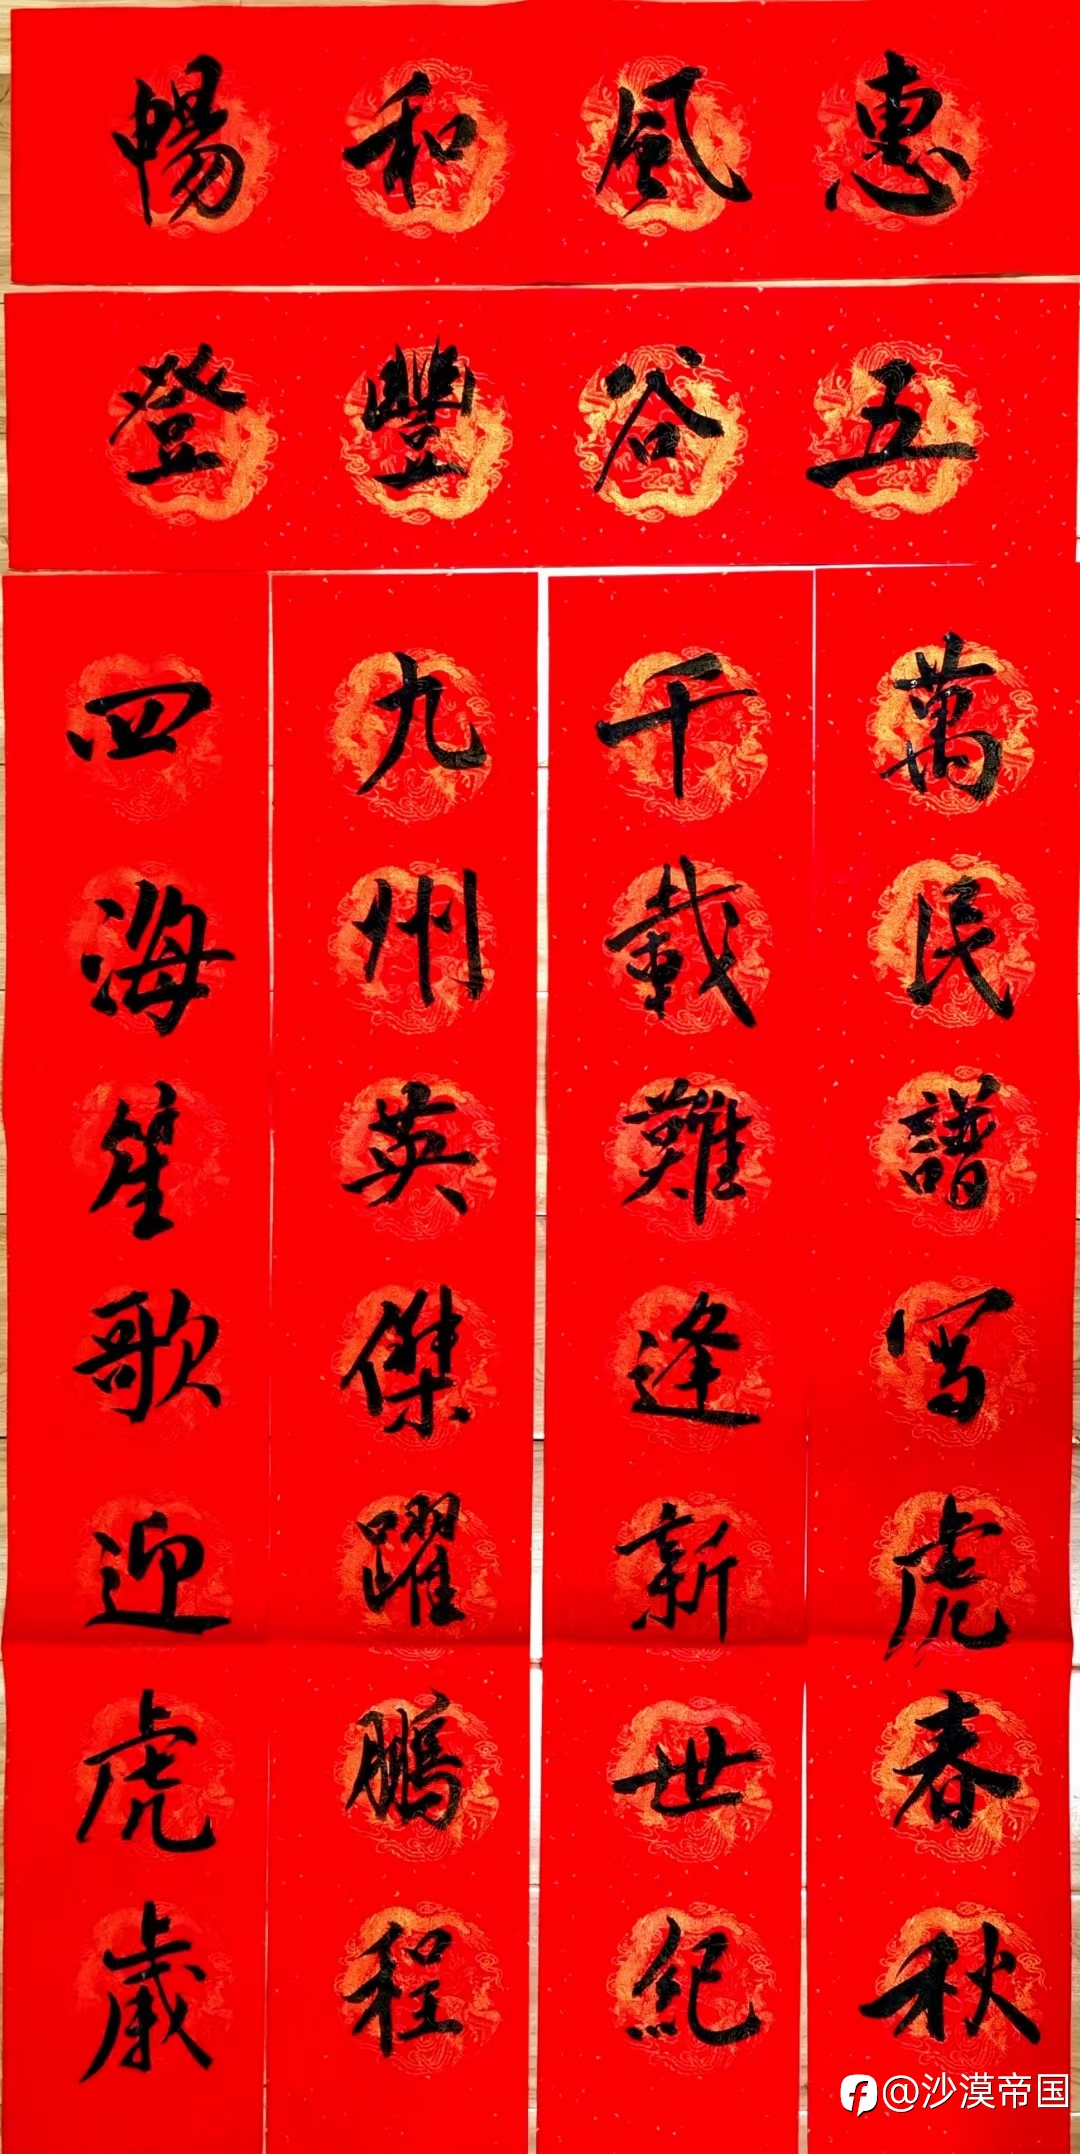 惠風和暢
五谷豐登
萬民譜写虎春秋
千載難逢新世紀
九州英傑躍鵬程
四海笙歌迎虎歲
@沙漠帝国